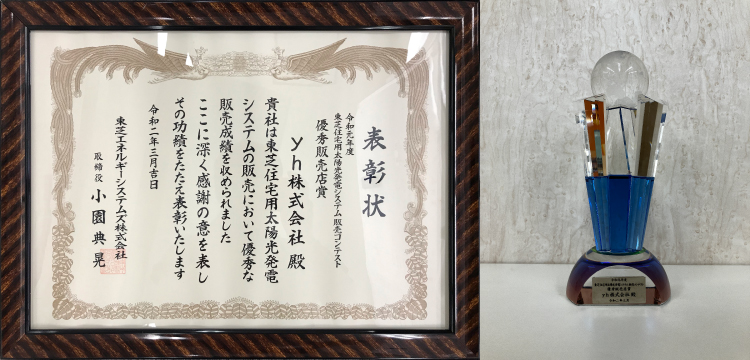 表彰状
令和元年度
東芝住宅用太陽光発電システム販売コンテスト
優秀販売店賞
yh株式会社 殿
貴社は東芝住宅用太陽光発電
システムの販売において優秀な
販売成績を収められました
ここに深く感謝の意を表し
その功績をたたえ表彰いたします
令和二年三月吉日
東芝エネルギーシステムズ株式会社
取締役 小園典晃
yh株式会社 殿